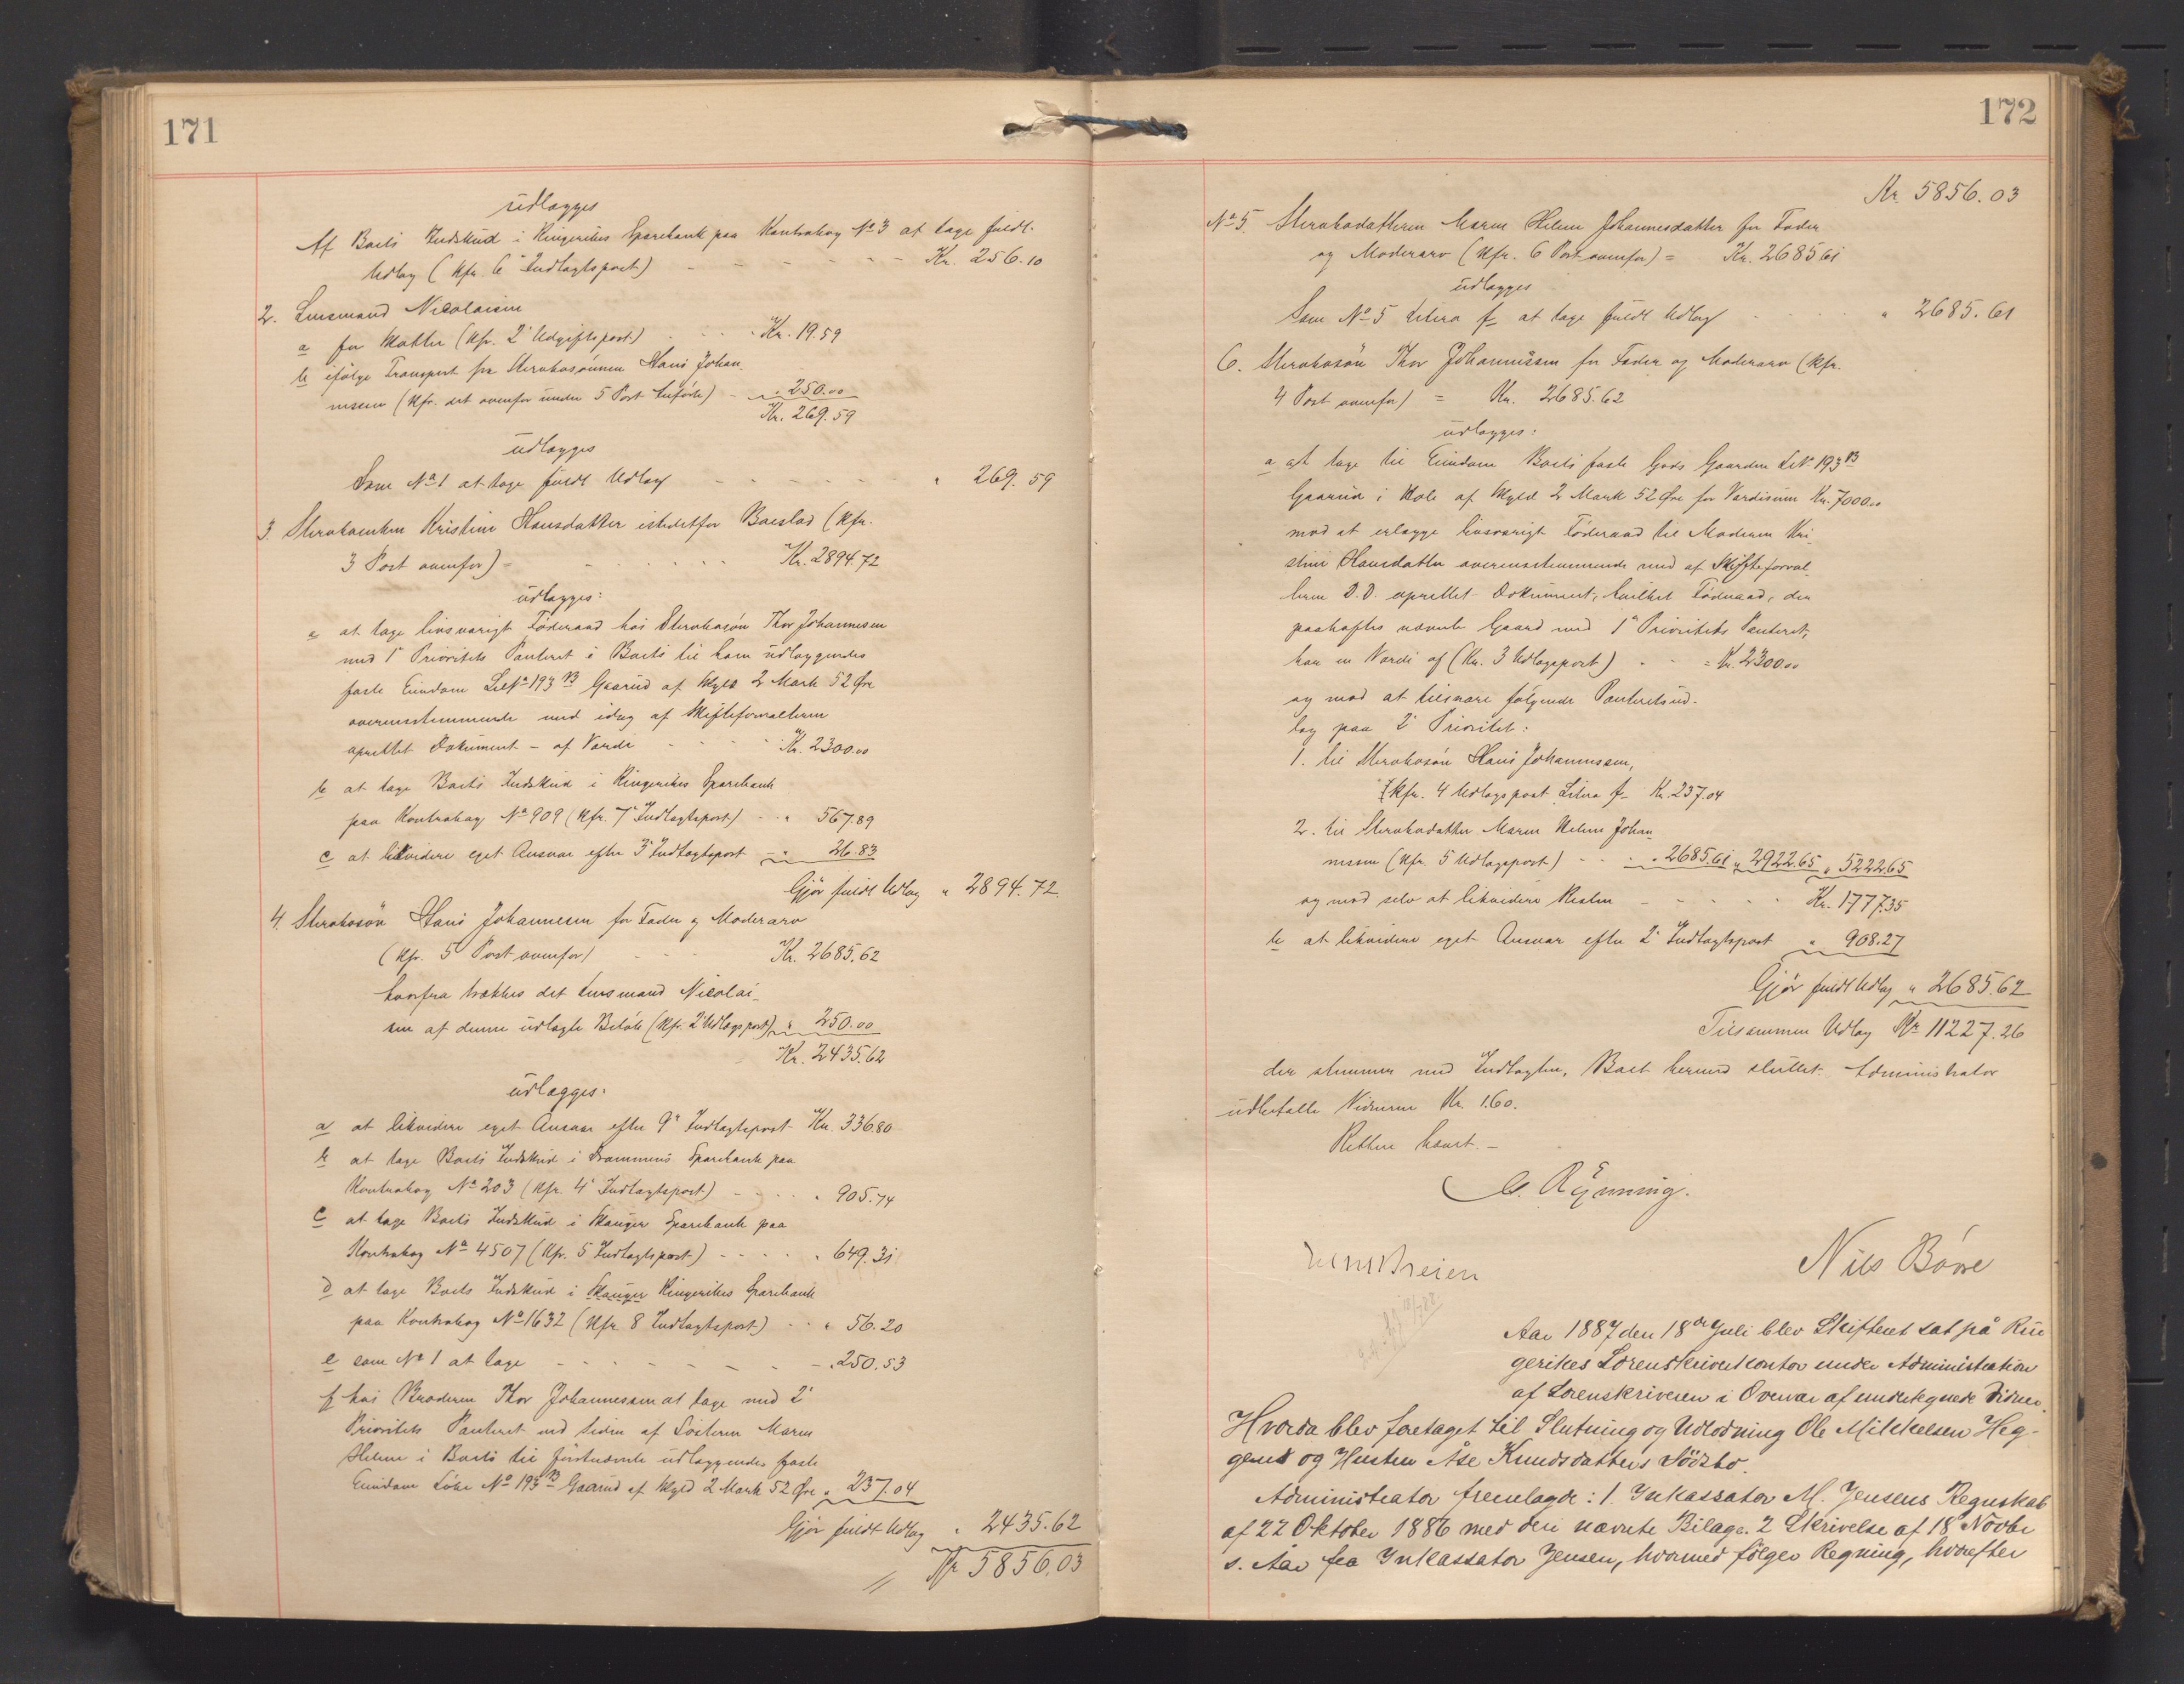 171
udlægges
Af Boets Indskud i Ringerikes Sparebank paa Kontrabog No 3 at tage fuldt
Udlæg (Kfr. 6te Indtægtspost) - - - - - - Kr. 256.10
2. Lensmand Nicolaisen
a for Skatter (Kfr. 2' Udgiftspost) . . . Kr. 19.59
b ifølge Transport fra Stervbosønnen Hans Johan-
nessen (Kfr. det ovenfor under 5 Post anførte) - " 250.00
Kr. 269.59
udlægges
Som No 1 at tage fuldt Udlæg - - - - - - " 269.59
3. Stervboenken Kristine Hansdatter istedetfor Boeslod (Kfr.
3 Post ovenfor) - - . . . . Kr. 2894.72
udlægges:
a at tage livsvarigt Föderaad hos Stervbosøn Thor Johannesen
med 1' Prioritets Panteret i Boets til ham udlæggendes
faste Eiendom LNo 193 B Gaarud af Skyld 2 Mark 52 Øre
overensstemmende med idag af Skifteforvalteren
oprettet Dokument - af Værdi - - - Kr. 2300.00
b at tage Boets Indskud i Ringerikes Sparebank
paa Kontrabog No 909 (Kfr. 7' Indtægtspost) - - " 567.89
c at likvidere eget Ansvar efter 3' Indtægtspost - " 26.83
Gjør fuldt Udlæg " 2894.72.
4. Stervbosøn Hans Johannesen for Fader og Moderarv
(Kfr. 5 Post ovenfor) - - - Kr. 2685.62
hvorfra trækkes det Lensmand Nicolai-
sen af denne udlagte Beløb (Kfr. 2' Udlægspost) " 250.00
Kr. 2435.62
udlægges:
a at likvidere eget Ansvar efter 9' Indtægtspost Kr. 336.80
b at tage Boets Indskud i Drammens Sparebank paa
Kontrabog No 203 (Kfr. 4' Indtægtspost) - - - . " 905.74
c at tage Boets Indskud i Skauger Sparebank paa
Kontrabog No 4507 (Kfr. 5 Indtægtspost) - - - . . " 649.31
d at tage Boets Indskud i Skauger Ringerikes Sparebank
paa Kontrabog No 1632 (Kfr 8 Indtægtspost) - - " 56.20
e som No 1 at tage - - - - - - - - " 250.53
f hos Broderen Thor Johannessen at tage med 2'
Prioritets Panteret ved siden af Søsteren Maren
Helene i Boets til førstnævnte udlæggendes faste
Eiendom Løbe No 193 B Gaarud af Skyld 2 Mark 52 Øre " 237.04
Gjør fuldt Udlæg " 2435.62
Kr 5856.03
172
Kr. 5856.03
No 5. Stervbodatteren Maren Helene Johannesdatter for Fader
og Moderarv (Kfr. 6 Post ovenfor) = Kr. 2685.61
udlægges
Som No 5 Litera f at tage fuldt Udlæg - . . . . " 2685.61
6. Stervbosøn Thor Johannissen for Fader og Moderarv (Kfr.
4 Post ovenfor) = Kr. 2685.62
udlægges:
a at tage til Eiendom Boets faste Gods Gaarden LNr 193 B
Gaarud i Hole af Skyld 2 Mark 52 Øre for Værdisum Kr. 7000.00
mod at erlægge livsvarigt Föderaad til Moderen Kri-
stine Hansdatter overensstemmende med af Skifteforval-
teren D.D. oprettet Dokument, hvilket Föderaad, der
paahæftes nævnte Gaard med 1' Prioritets Panteret,
har en Værdi af (Kr. 3 Udlægspost) . - = Kr. 2300.00
og mod at tilsvare følgende Panteretsud-
læg paa 2' Prioritet:
1. til Stervbosøn Hans Johannessen,
(Kfr. 4 Udlægspost Litra f - Kr. 237.04
2. til Stervbodatter Maren Helene Johan-
nessen (Kfr. 5 Udlægspost) - - . . " 2685.61 " 2922.65 " 5222.65
og mod selv at likvidere Resten - - - . . . Kr. 1777.35
b at likvidere eget Ansvar efter 2' Indtægtspost " 908.27
Gjør fuldt Udlæg " 2685.62
Tilsammen Udlæg Kr 11227.26
der stemmer med Indtægten, Boet hermed sluttet. Administrator
udbetalte Vidnerne Kr. 1.60.
Retten hævet. -
C. Rynning.
Nils Børre
Aar 1887 den 18de Juli blev Skifteret sat på Rin
gerikes Sorenskriverkontor under Administration
af Sorenskriveren i Overvær af undertegnede Vidner.
Hvorda blev foretaget til Slutning og Udlodning Ole Mikkelsen Heg-
gens og Hustru Åse Knudsdatters Födsbo.
Administrator fremlagde: 1. Inkassator M. Jensens Regnskab
af 22 Oktober 1886 med deri nævnte Bilage. 2 Skrivelse af 18 Novbr
s. Aar fra Inkassator Jensen, hvormed følger Regning, hvorefter